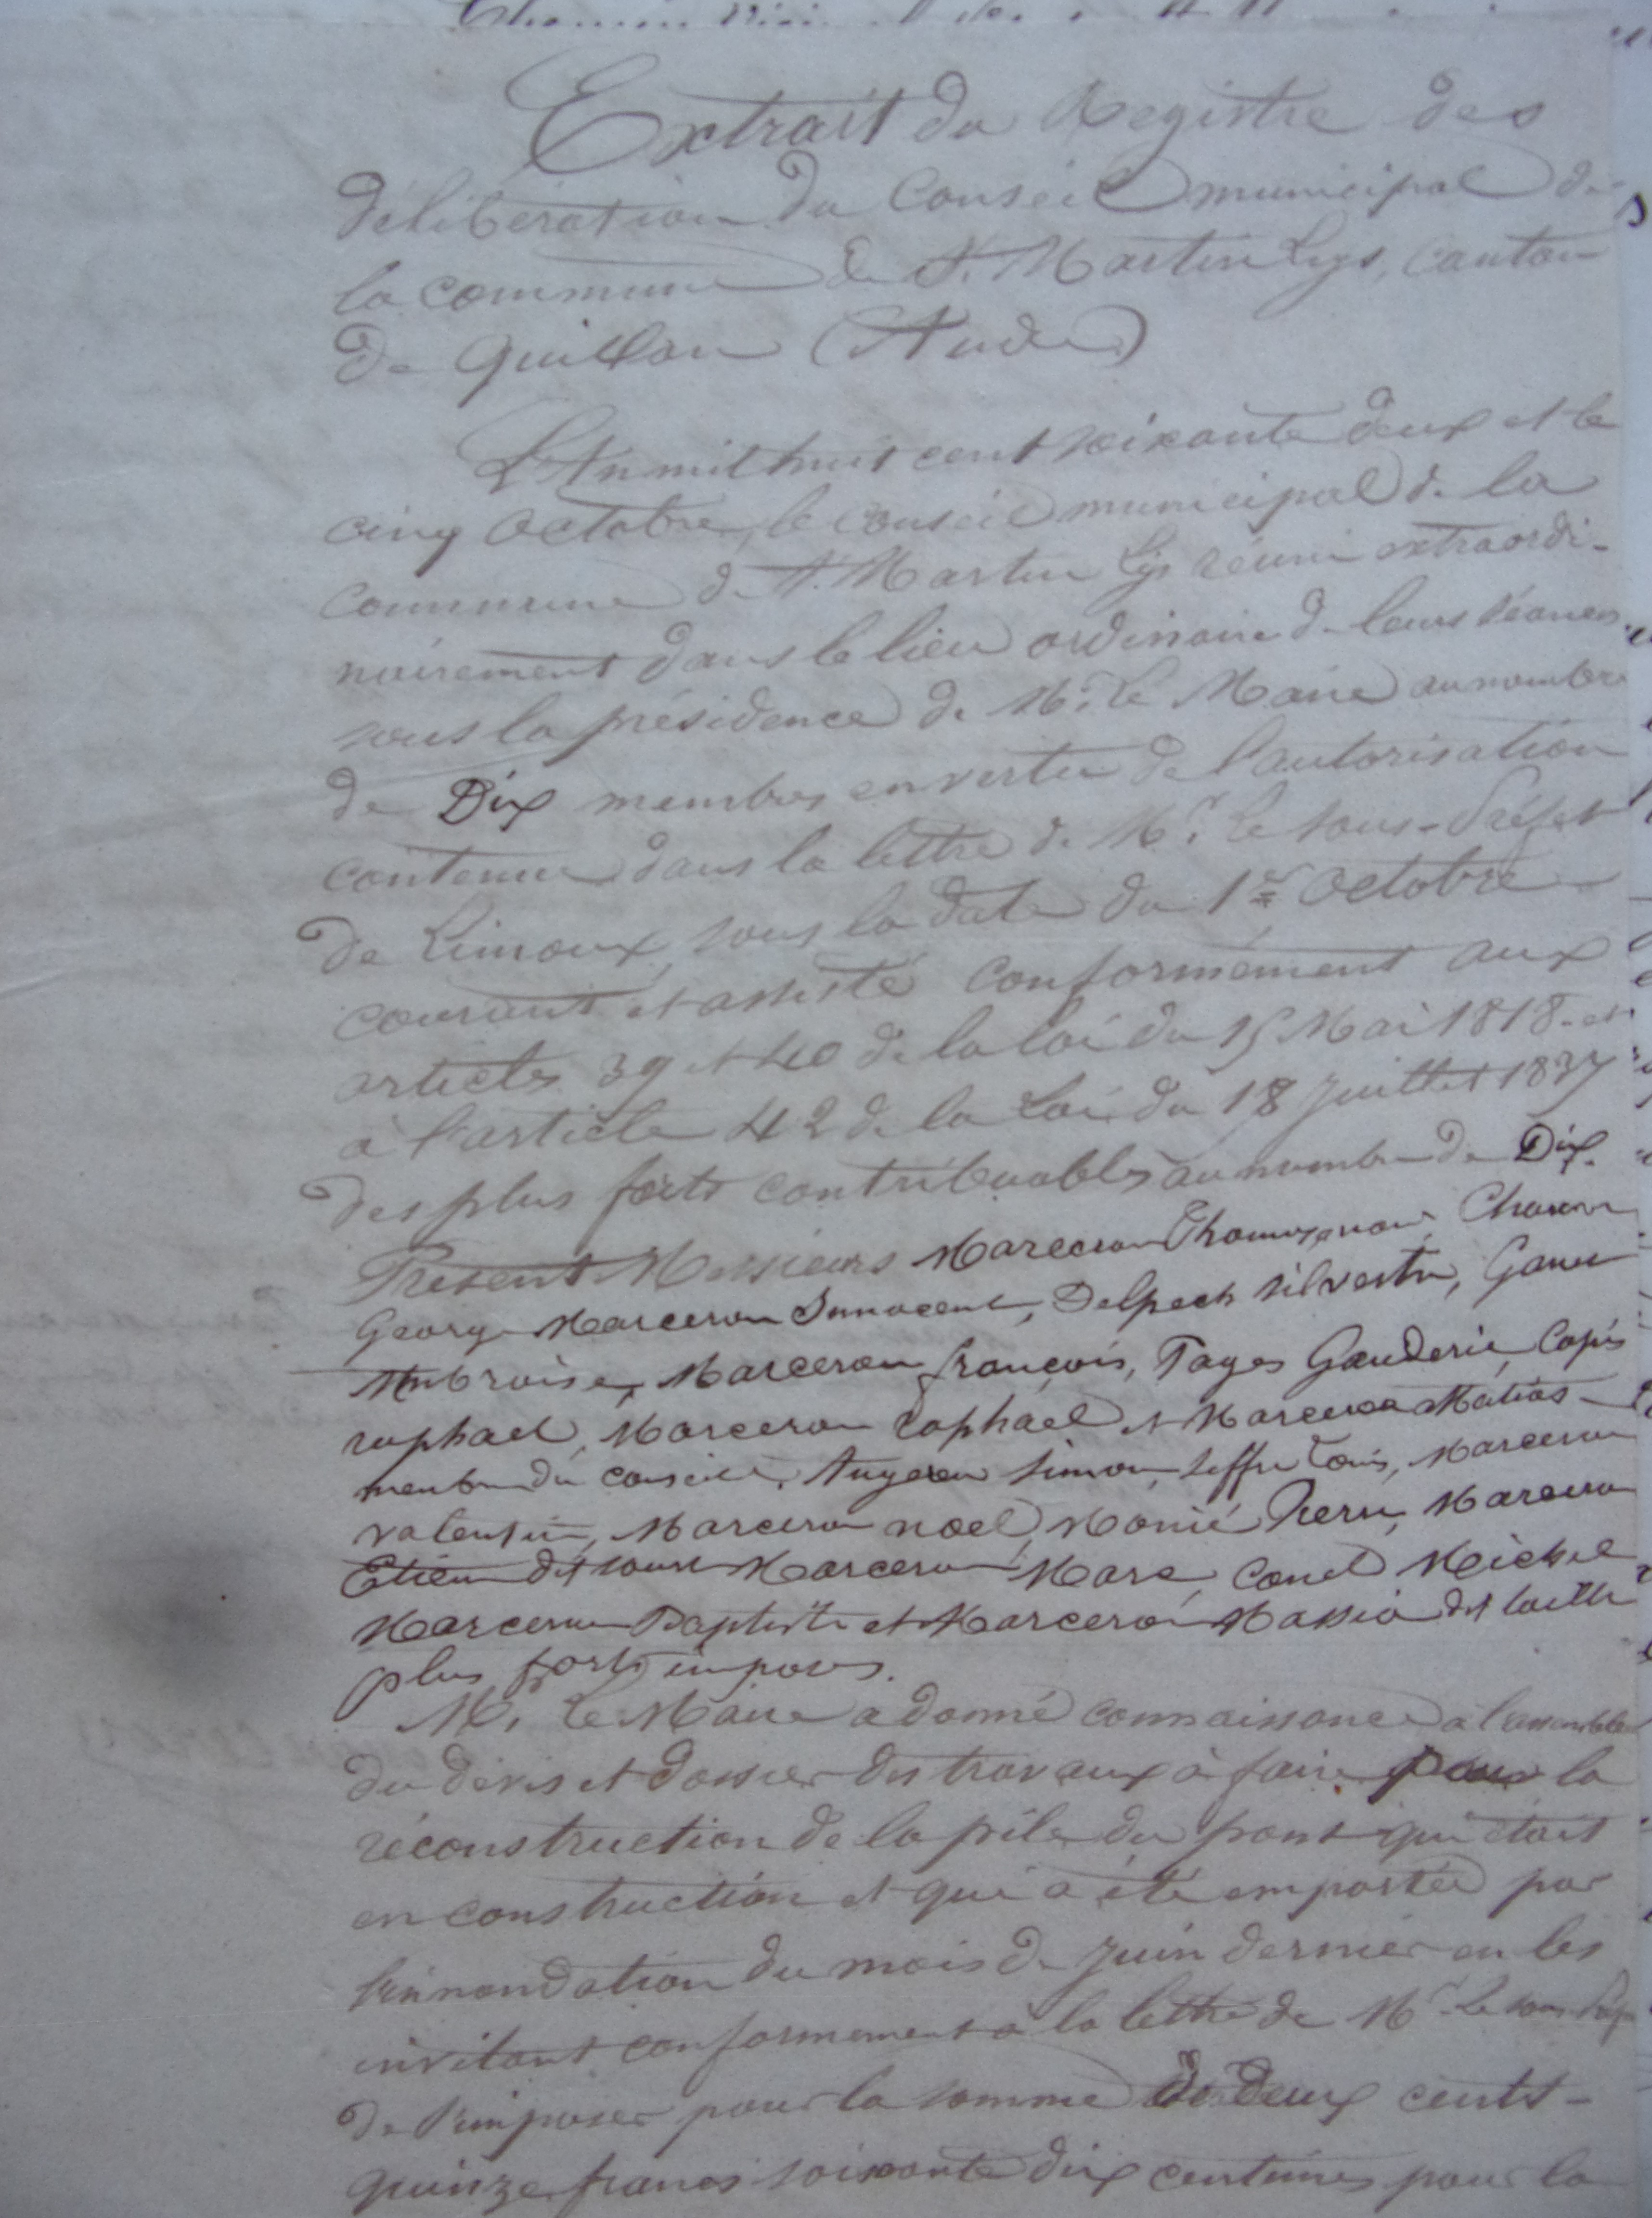 Extrait du Registre des
délibération du Conseil municipal de
la commune de St. Martin Lys, canton
de Quillan (Aude)
L'An mil huit cent soixante deux et le
cinq Octobre, le conseil municipal de la
commune de St. Martin Lys réuni extraordi-
nairement dans le lieu ordinaire de leurs séances
sous la présidence de Mr. le Maire au nombre
de Dix membres en vertu de l'autorisation
contenue dans la lettre de Mr. le sous-Préfet
de Limoux, sous la date du 1er Octobre
courant et assisté conformément aux
articles 39 et 40 de la loi du 15 Mai 1818 et
à l'article 42 de la Loi du 18 juillet 1837
des plus forts contribuables au nombre de Dix.
Présents Messieurs Marceron Chauvin
George Marceron Innocent, Delpech silvestre,
Ambroise, Marceron françois, Pages Gauderic, Capis
raphael, Marceron raphael et Marceron Matias
membre du conseil, simon, siffre Louis, Marceron
valentin, Marceron noel, Monié Pierre, Marceron
Etienne dit Marceron Marc, Canel Michel
Marceron Baptiste et Marceron dit
plus forts imposés.
Mr. Le Maire a donné connaissance à l'assemblée
du devis et dossier des travaux à faire pour la
réconstruction de la pile du pont qui était
en construction et qui a été emportée par
l'innondation du mois de juin dernier en les
invitant conformement à la lettre de Mr le sous
de s'imposer pour la somme de Deux cents-
quinze francs soixante dix centimes pour la